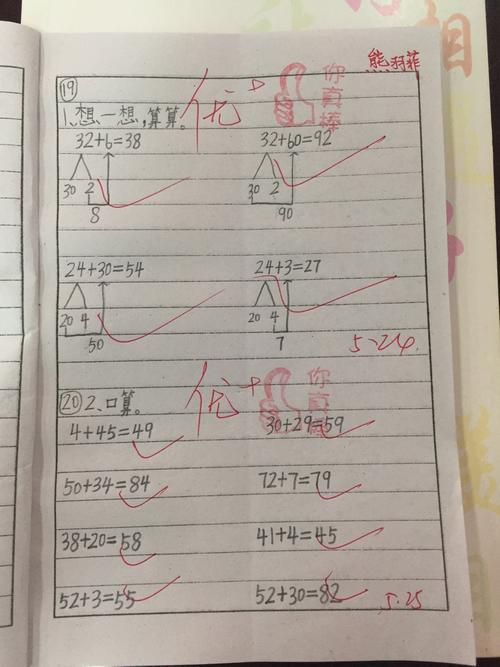 熊羽菲
相
⑲
优+ 你真棒
1、想一想,算算。
32+6=38 32+60=92
30 2 30 2
8 90
24+30=54 24+3=27
20 4 20 4
50 7
5-24.
优+ 你真棒
⑳2、口算。
4+45=49 30+29=59
50+34=84 72+7=79
38+20=58 41+4=45
52+3=55 52+30=82
5.25